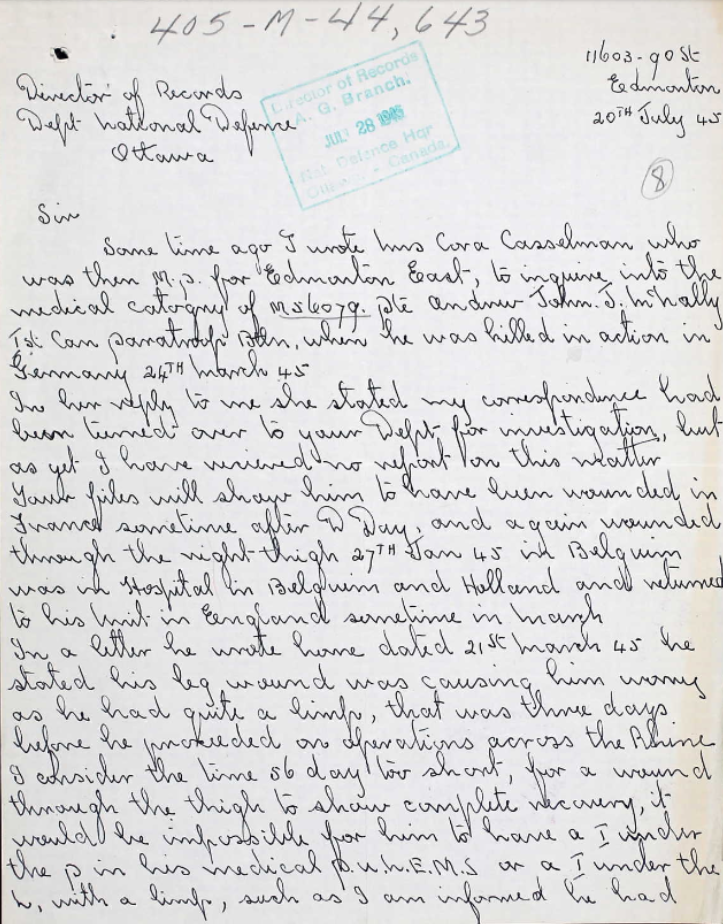 405-M-44,643
11603-90 St
Edmonton
20TH July 45
Director of Records
Dept National Defence
Ottawa
Director of Records
A. G. Branch.
JUL 28 1945
Nat. Defence Hqr
Ottawa - Canada.
8
Sir
Some time ago I wrote Mrs Cora Casselman who
was then M.P. for Edmonton East, to inquire into the
medical catogry of M56079. Pte Andrew John. J. McNally
1st Can paratroop Btln, when he was killed in action in
Germany 24TH March 45
In her reply to me she stated my correspondence had
been turned over to your Dept for investigation, but
as yet I have recieved no report on this matter
Your files will show him to have been wounded in
France sometime after D Day, and again wounded
through the right thigh 27TH Jan 45 in Belguim
was in Hospital in Belguim and Holland and returned
to his Unit in Eengland sometime in March
In a letter he wrote home dated 21st March 45 he
stated his leg wound was causing him worry
as he had quite a limp, that was three days
before he proceeded on operations across the Rhine
I consider the time 56 day too short, for a wound
through the thigh to show complete recovery, it
would be impossible for him to have a I under
the P in his medical P.U.L.H.E.M.S or a I under the
L, with a limp, such as I am informed he had